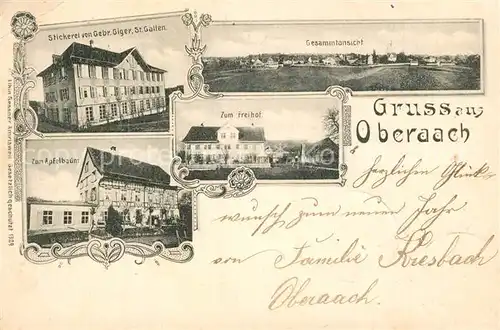 Stickerei von Gebr. Giger, St. Gallen.
Gesamtansicht
Zum Freihof.
Zum Apfelbaum
Gruss aus
Oberaach
herzlichen Glück-
wunsch zum neuen Jahr
von Familie Kresbach
Oberaach.